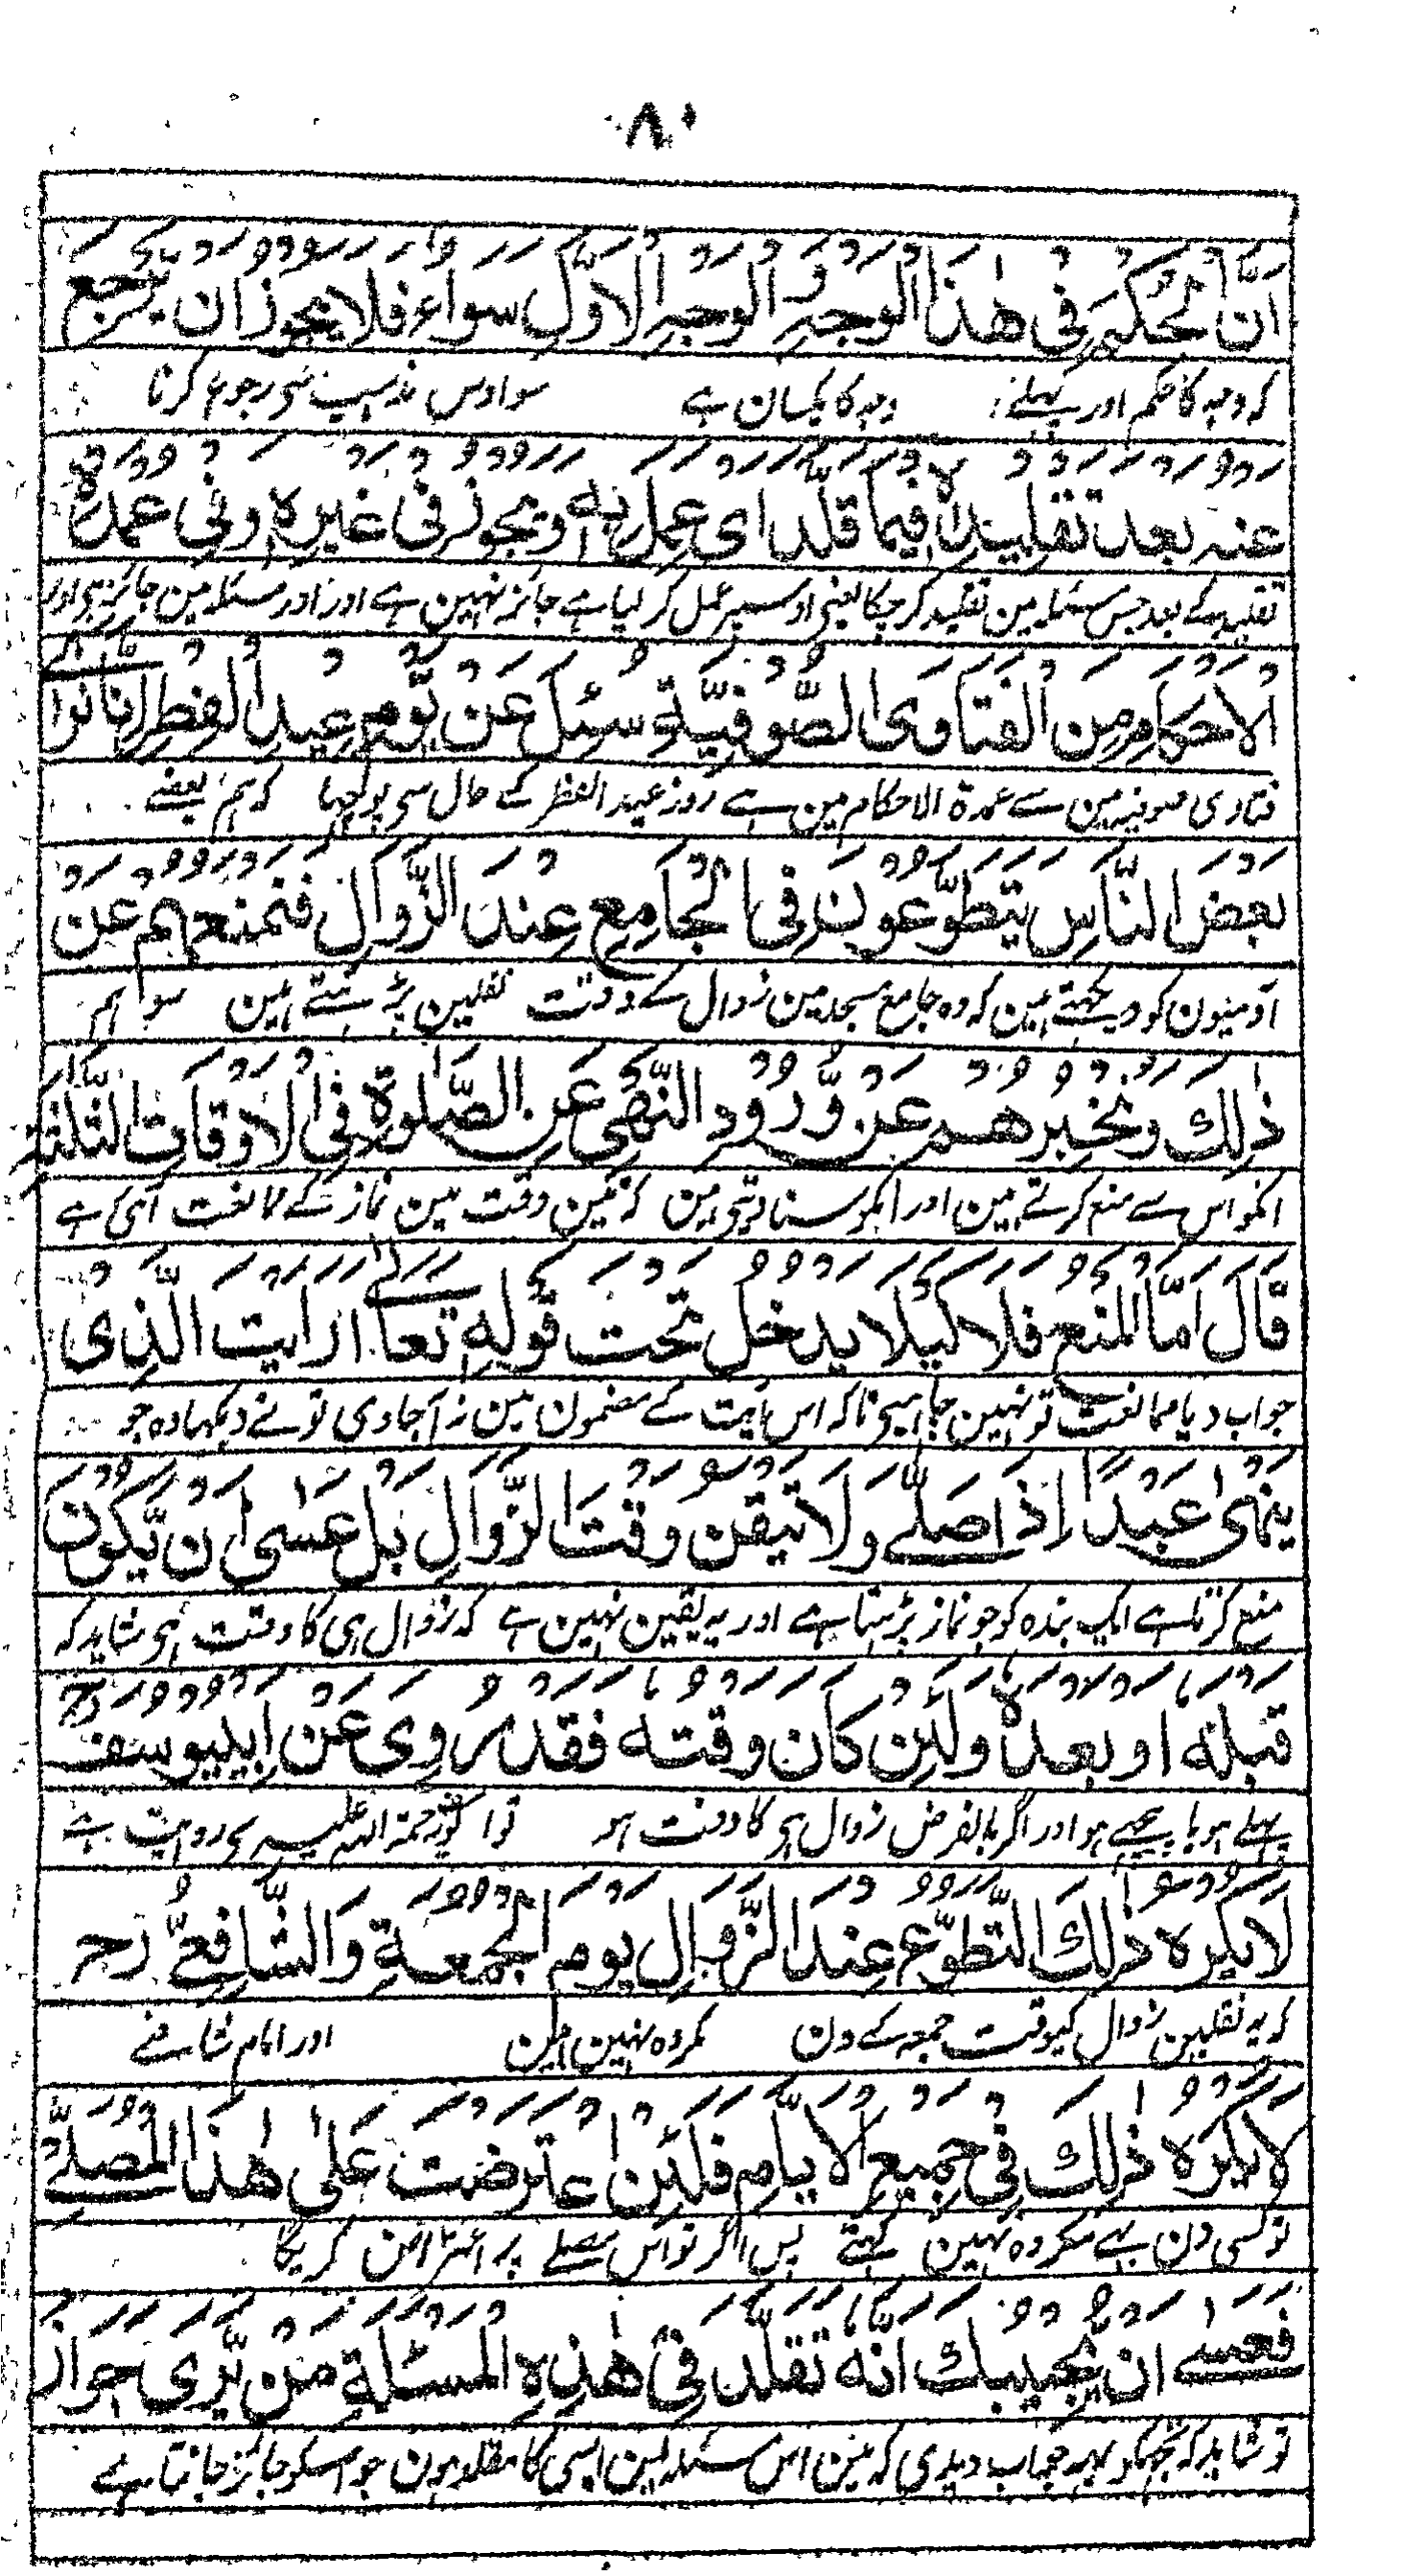 ۸۰
اَنَّ الْحُكْمَ فِي هٰذَا الْوَجْهِ وَالْوَجْهِ الْاَوَّلِ سَوَاءٌ فَلَا يَجُوْزُ اَنْ يَّرْجِعَ
کہ وجہ کا حکم اور پہلے وجہ کا یکسان ہے سو اوس مذہب سی رجوع کرنا
عَنْهُ بَعْدَ تَقْلِيْدِهٖ فِيْمَا قَلَّدَ اَيْ عَمِلَ بِهٖ وَيَجُوْزُ فِيْ غَيْرِهٖ وَفِيْ عُمْدَةِ
تقلید کے بعد جس مسئلہ مین تقلید کر چکا یعنی اوسپر عمل کر لیا ہے جائز نہین ہے اور اور مسئلہ مین جائز ہی اور
الْاَحْكَامِ مِنَ الْفَتَاوَى الصُّوْفِيَّةِ سُئِلَ عَنْ يَّوْمِ عِيْدِ الْفِطْرِ اِنَّا نَرٰى
فتاوی صوفیہ مین سے عمدۃ الاحکام مین ہے روز عید الفطر کے حال سی پوچہا کہ ہم بعضے
بَعْضَ النَّاسِ يَتَطَوَّعُوْنَ فِي الْجَامِعِ عِنْدَ الزَّوَالِ فَنَمْنَعُهُمْ عَنْ
آدمیون کو دیکہتے ہین کہ وہ جامع مسجد مین زوال کے وقت نفلین پڑہتے ہین سو ہم
ذٰلِكَ وَنُخْبِرُهُمْ عَنْ وُّرُوْدِ النَّهْيِ عَنِ الصَّلٰوةِ فِي الْاَوْقَاتِ الثَّلٰثَةِ
انکو اس سے منع کرتے ہین اور انکو سنا دیتی ہین کہ تین وقت مین نماز کے ممانعت آئی ہے
قَالَ اَمَّا الْمَنْعُ فَلَا كَيْلَا يَدْخُلَ تَحْتَ قَوْلِهٖ تَعَالٰى اَرَاَيْتَ الَّذِيْ
جواب دیا ممانعت تو نہین چاہیی تاکہ اس آیت کے مضمون مین نہ آجاوی تو نے دیکہا وہ جو
يَنْهٰى عَبْدًا اِذَا صَلّٰے وَلَا تَيَقُّنَ وَقْتَ الزَّوَالِ بَلْ عَسٰى اَنْ يَّكُوْنَ
منع کرتا ہے ایک بندہ کو جو نماز پڑہتا ہے اور یہ یقین نہین ہے کہ زوال ہی کا وقت ہی شاید کہ
قَبْلَهٗ اَوْ بَعْدَهٗ وَلَئِنْ كَانَ وَقْتَهٗ فَقَدْ رُوِيَ عَنْ اَبِيْ يُوْسُفَ رح
پہلے ہو یا پیچہے ہو اور اگر بالفرض زوال ہی کا وقت ہو تو رحمۃ اللہ علیہ سی روایت ہے
لَا يَكْرَهُ ذٰلِكَ التَّطَوُّعَ عِنْدَ الزَّوَالِ يَوْمَ الْجُمُعَةِ وَالشَّافِعِيُّ رح
کہ یہ نفلین زوال کیوقت جمعہ کے دن مکروہ نہین ہین اور امام شافعے
لَا يَكْرَهُ ذٰلِكَ فِيْ جَمِيْعِ الْاَيَّامِ فَلَئِنْ اعْتَرَضْتَ عَلٰى هٰذَا الْمُصَلِّے
تو کسی دن بہے مکروہ نہین کہتے پس اگر تو اس مصلے پر اعتراض کریگا
فَعَسٰے اَنْ يُّجِيْبَكَ اَنَّهٗ تَقَلَّدَ فِيْ هٰذِهِ الْمَسْئَلَةِ مَنْ يَّرٰى جَوَازَ
تو شاید کہ تجہکو یہہ جواب دیدی کہ مین اس مسئلہ مین ایسی کا مقلد ہون جو اسکو جائز جانتا ہے